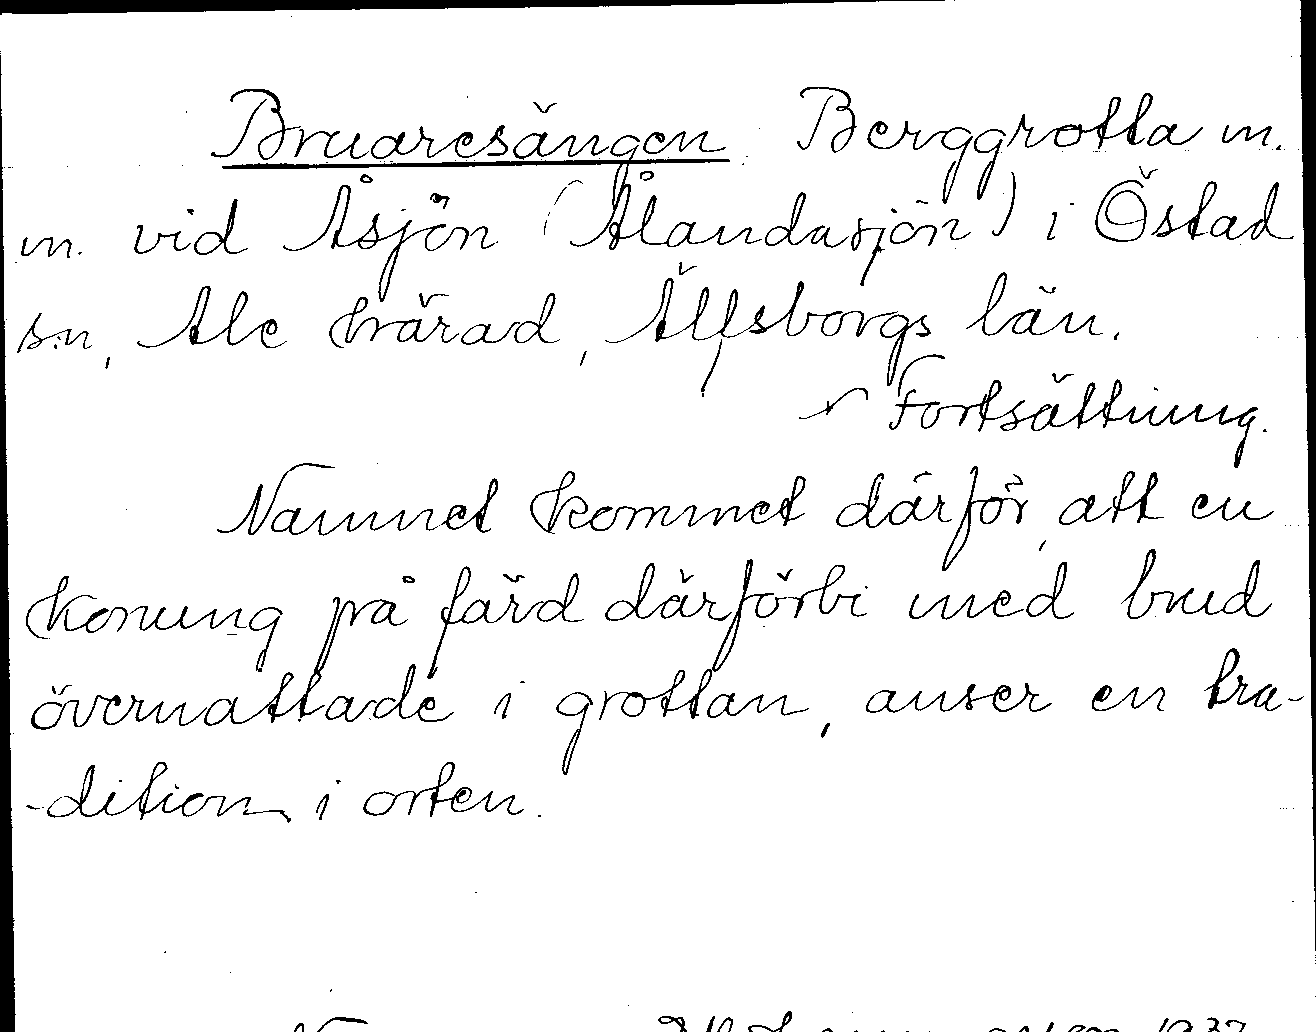 Bruaresängen Berggrotta m.
m. vid Åsjön (Ålandasjön) i Östad
sn, Ale härad, Älfsborgs län.
Fortsättning.
Namnet kommet därför, att en
konung på färd därförbi med brud
övernattade i grottan, anser en tra-
-dition i orten.
1937